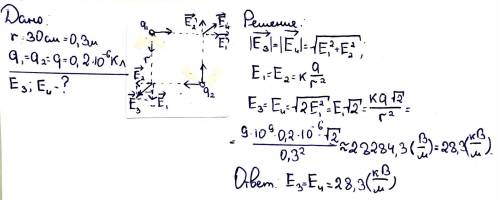 Дано:
r = 30см = 0,3м
q₁ = q₂ = q = 0,2·10⁻⁶Кл
E₃; E₄ - ?
q₁
r
E₂
E₄
E₁
E₂
E₃
E₁
q₂
Решение:
|E₃| = |E₄| = √(E₁² + E₂²);
E₁ = E₂ = k q/r²
E₃ = E₄ = √(2E₁²) = E₁√2 = kq√2/r² =
= 9·10⁹·0,2·10⁻⁶·√2/0,3² ≈ 28284,3 (В/м) = 28,3 (кВ/м)
Ответ: E₃ = E₄ = 28,3 (кВ/м)